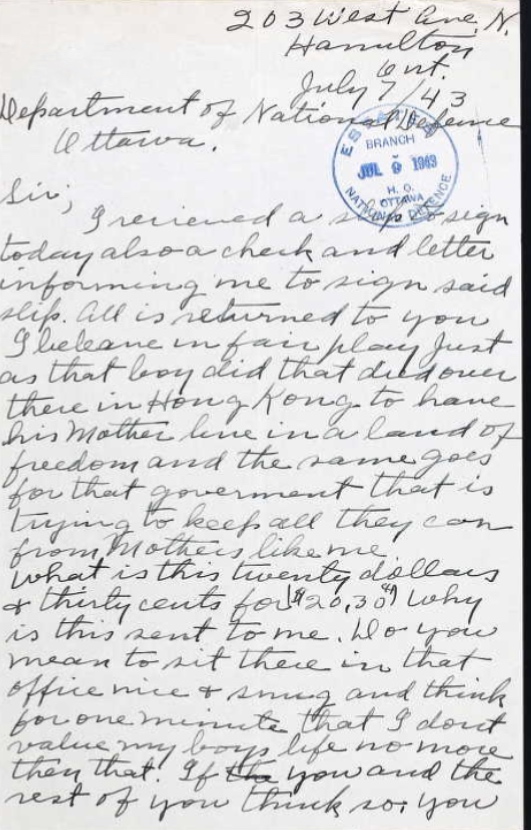 203 West Ave. N.
Hamilton
Ont.
July 7/43
Department of National Defence
Ottawa.
ESTATES
BRANCH
JUL 9 1943
H. Q.
OTTAWA
NATIONAL DEFENCE
Sir;
I recieved a slip to sign
today also a check and letter
informing me to sign said
slip. All is returned to you
I beleave in fair play Just
as that boy did that died over
there in Hong Kong to have
his Mother live in a land of
freedom and the same goes
for that goverment that is
trying to keep all they can
from Mothers like me
What is this twenty dollars
& thirty cents for ($20,30¢) Why
is this sent to me. Do you
mean to sit there in that
office nice & smug and think
for one minute that I dont
value my boys life no more
then that. If the you and the
rest of you think so, you